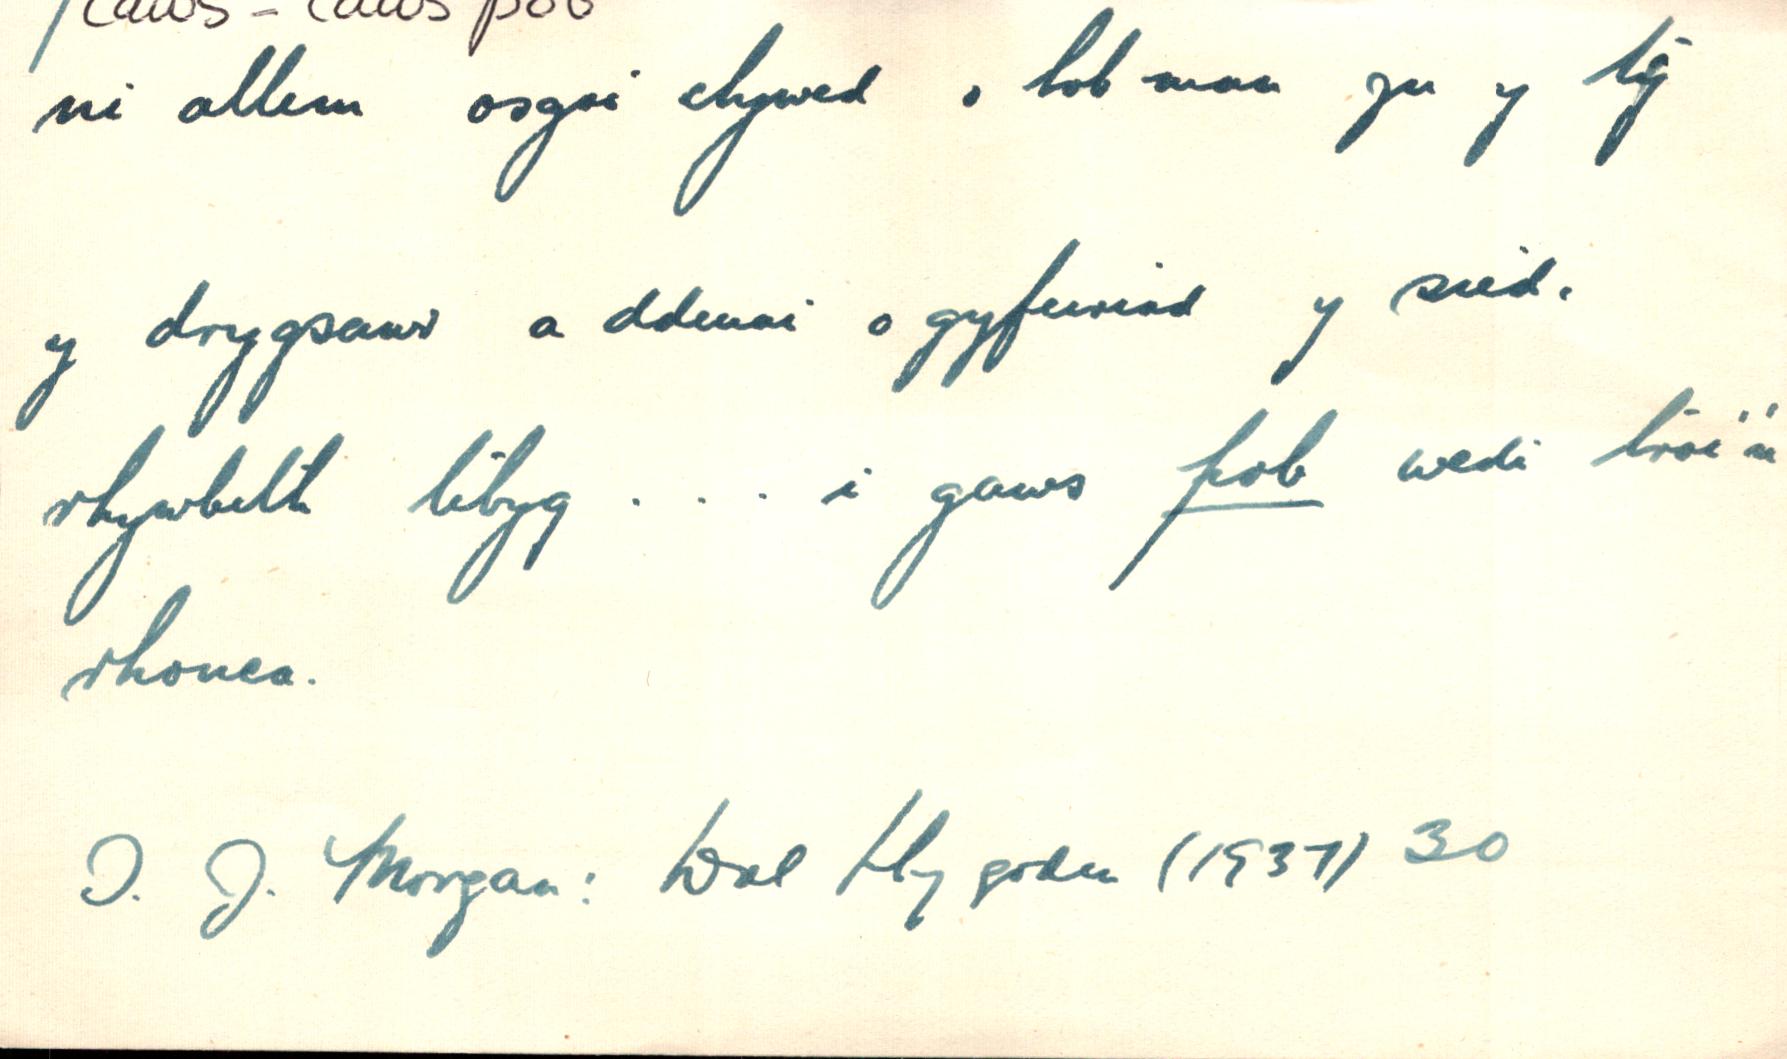 caws - caws pob
ni allem osgoi clywed o bob man yn y tŷ
y drygsawr a ddeuai o gyfeiriad y sied.
rhywbeth tebyg . . . i gaws pob wedi troi'n
rhonca.
T. J. Morgan: Dal Llygoden (1937) 30